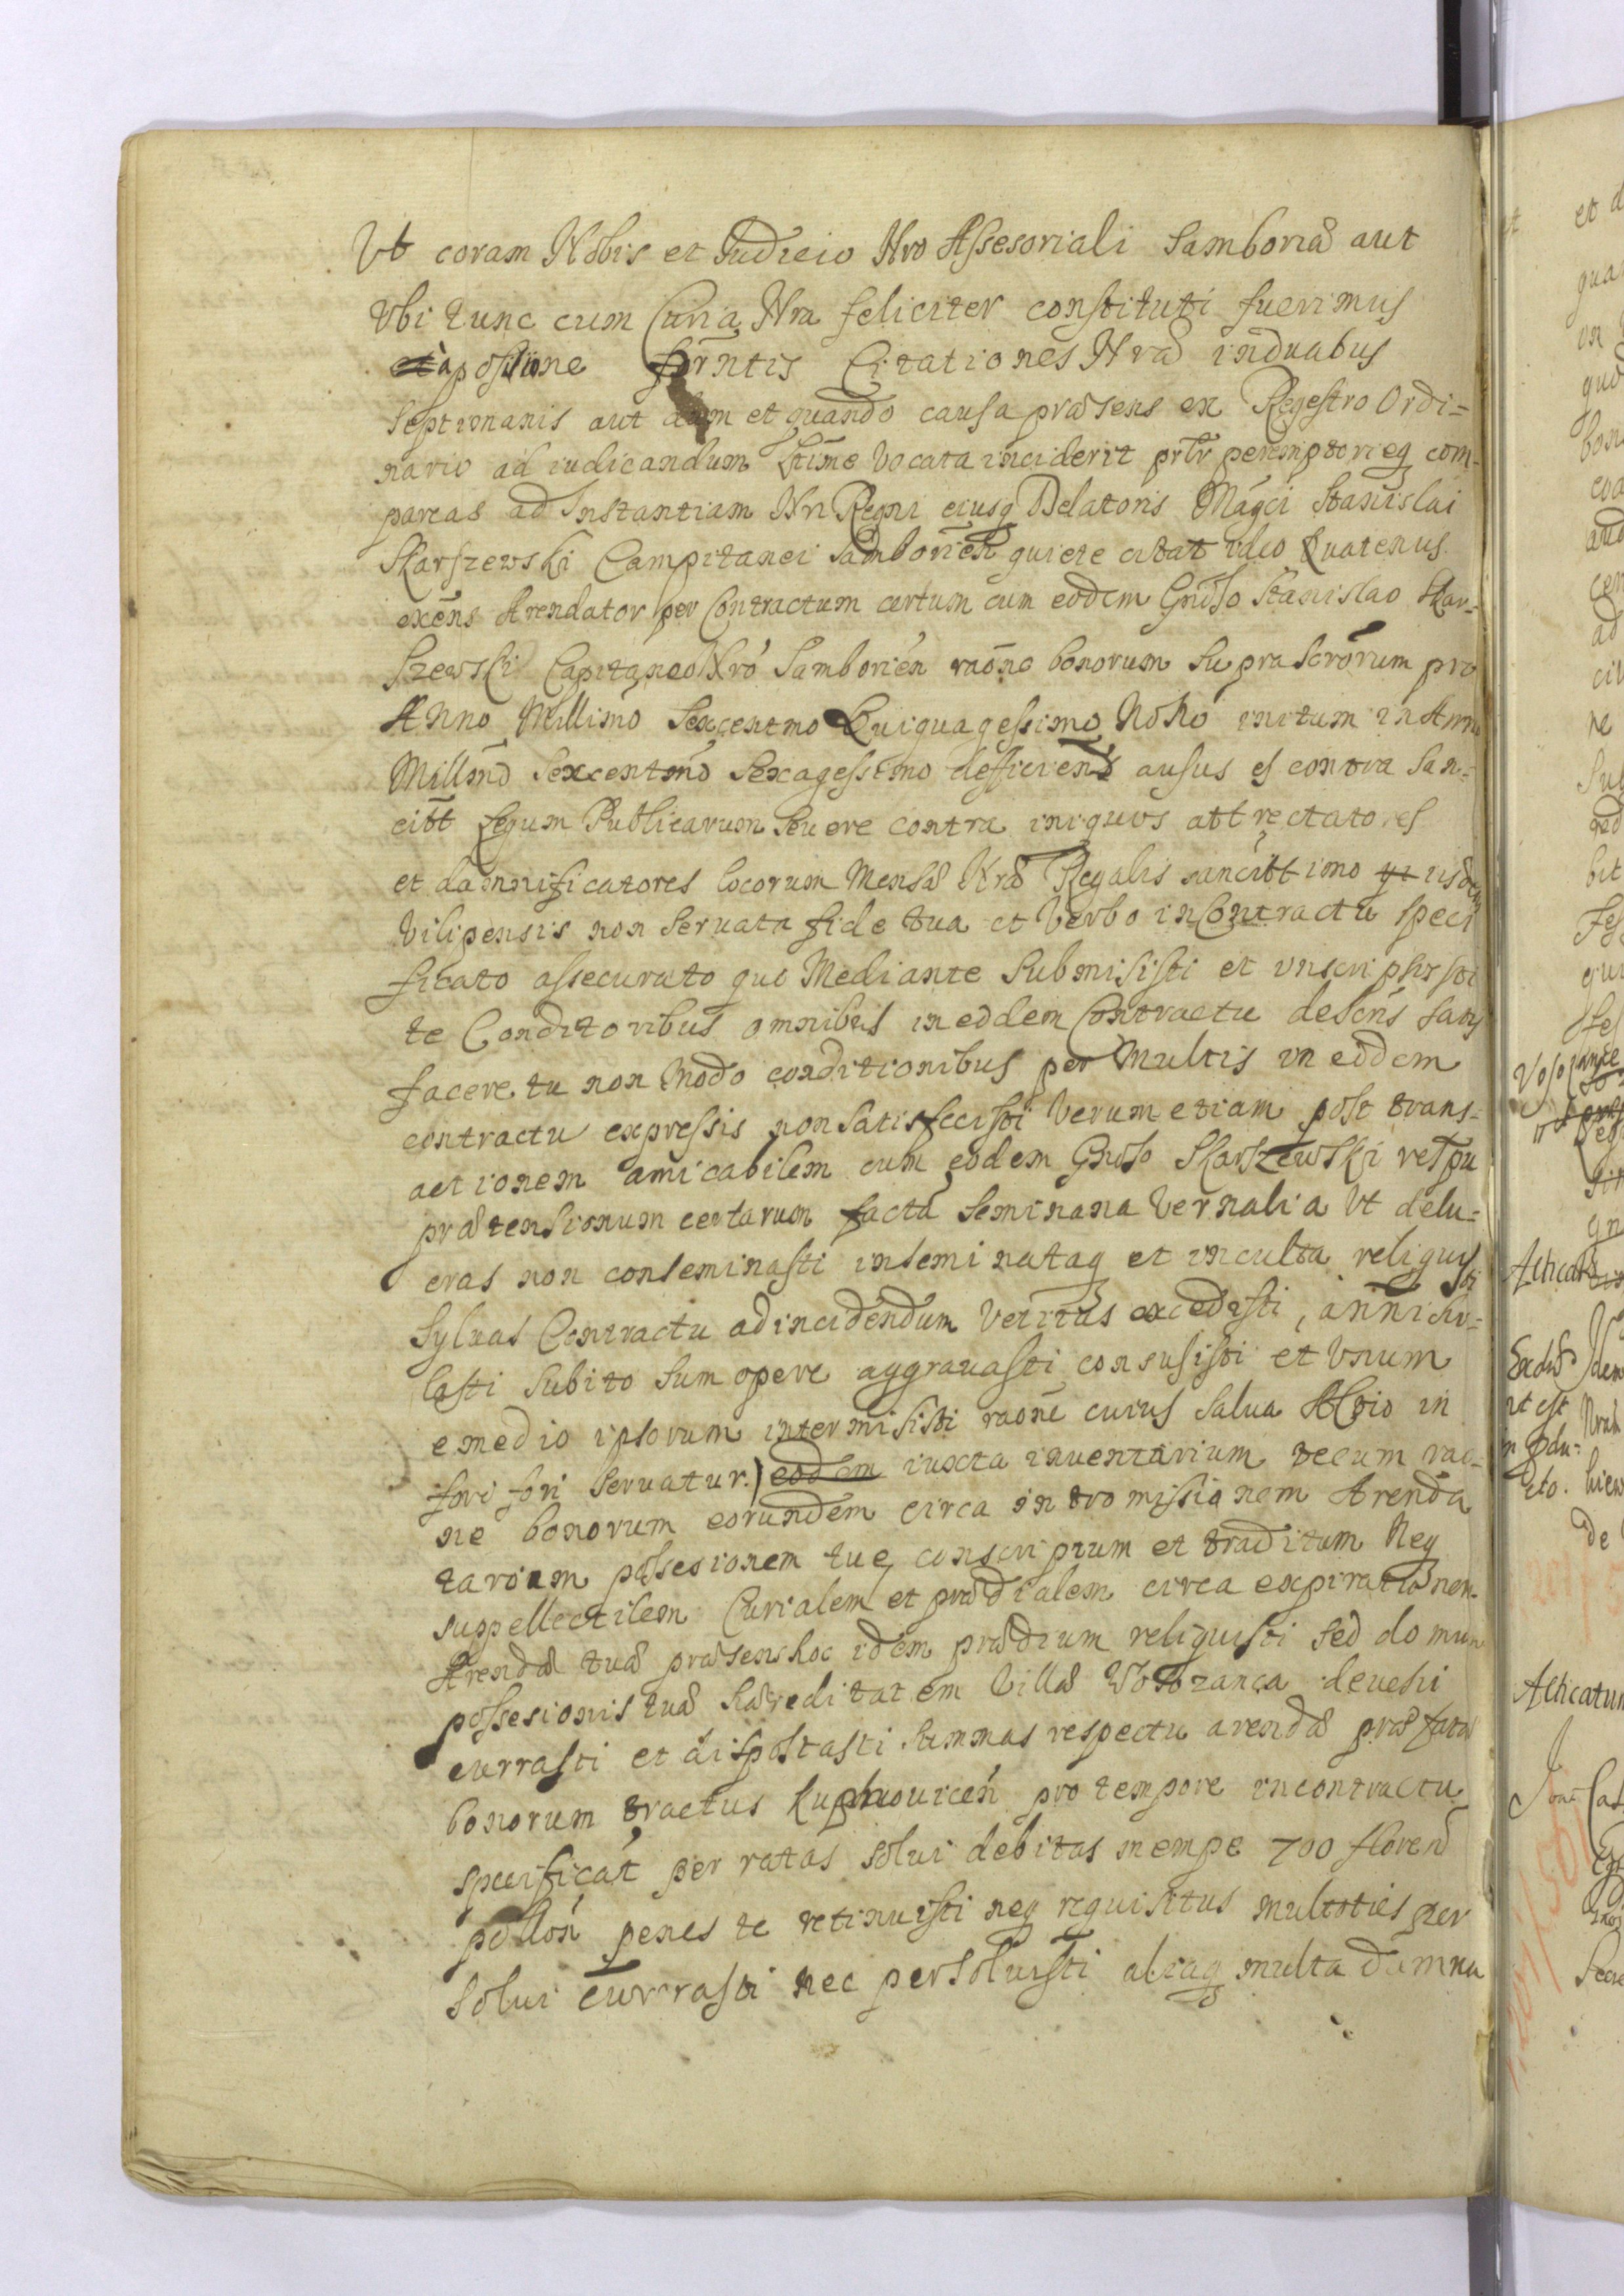 Vt coram Nobis et Judicio Nro Assesoriali Samboriæ aut
Vbi tunc cum Curia Nra feliciter constituti fuerimus
a positione Citationes Nræ in duabus
septimanis aut dum et quando causa præsens ex Regestro Ordi=
nario ad iudicandum Ltime vocata inciderit peremptorieq com-
pareas ad Instantiam Nri Regni eiusq Delatoris Magci Stanislai
Skarszewski Campitanei Samborien qui ete citat ideo Quatenus
exēns Arendator per Contractum certum cum eodem Gnoso Stanislao Skar=
szewski Capitaneo Nro Samborien raōne bonorum Supra scrōrum pro
Anno Millimo Sexcentmo Quiquagessimo Nono initum in Anno
Millmo Sexcentmo Sexagessimo defficiens ausus es contra San=
citt Legum Publicarum Seuere contra iniquos attrectatores
et damnificatores locorum Mensæ Nræ Regalis sancitt imo iisdem
vilipensis non seruata fide tua et Verbo in Contractu speci
ficato assecurato quo Mediante submisisti et inscripsisti
te Conditoribus omnibus in eodem Contractu descris satis
facere tu non modo conditionibus per multis in eodem
contractu expressis non satisfecisti verum etiam post trans=
actionem amicabilem cum eodem Gnoso Skarszewski restpu
prætensionum certarum facta seminana Vernalia Vt delu=
eras non conseminasti inseminataq et inculta reliquisti
Syluas Contractu ad incidendum vetitas excedisti, annichi=
lasti subito sum opere aggrauasti consusisti et Vnum
e medio ipsorum intermisisti raōne cuius salua Actio in
fori fori seruatur.) eodem iuxta inuentarium tecum rao=
ne bonorum eorundem circa intromissionem Arenda
tariam possesionem tuę conscriptum et traditum Neq
suppellectilem Curialem et prædialem circa expirationem
Arendæ tuæ præsens hoc idem prædium reliquisti sed domum
possesionis tuæ hæreditatem Villæ Wołczanca deuehi
currasti et disportasti summas respectu arendæ præfatæ
bonorum tractus Łuphnouicen pro tempore in contractu
specificat per ratas solui debitas nempe 700 floren
pollon penes te retinuisti neq requisitus multoties per
solui currasti nec persoluisti aliaq multa damna